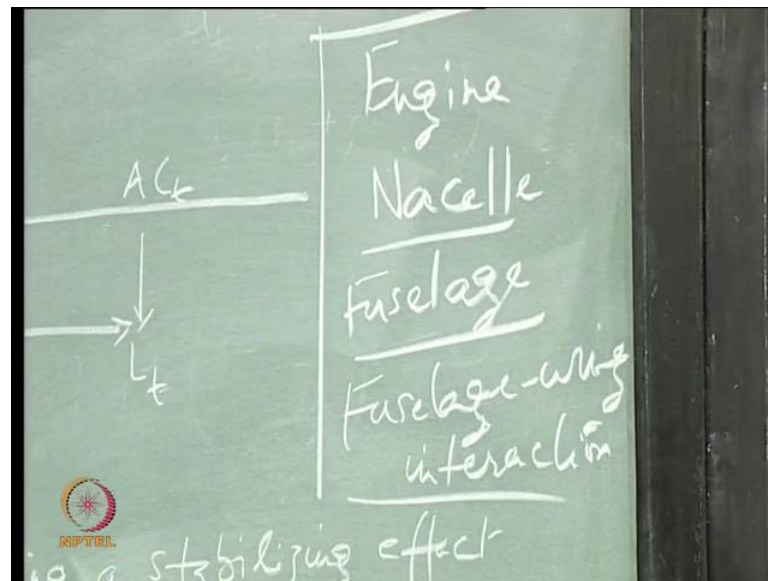 Engine
Nacelle
Fuselage
Fuselage-wing
interaction
ACt
Lt
a stabilizing effect
NPTEL